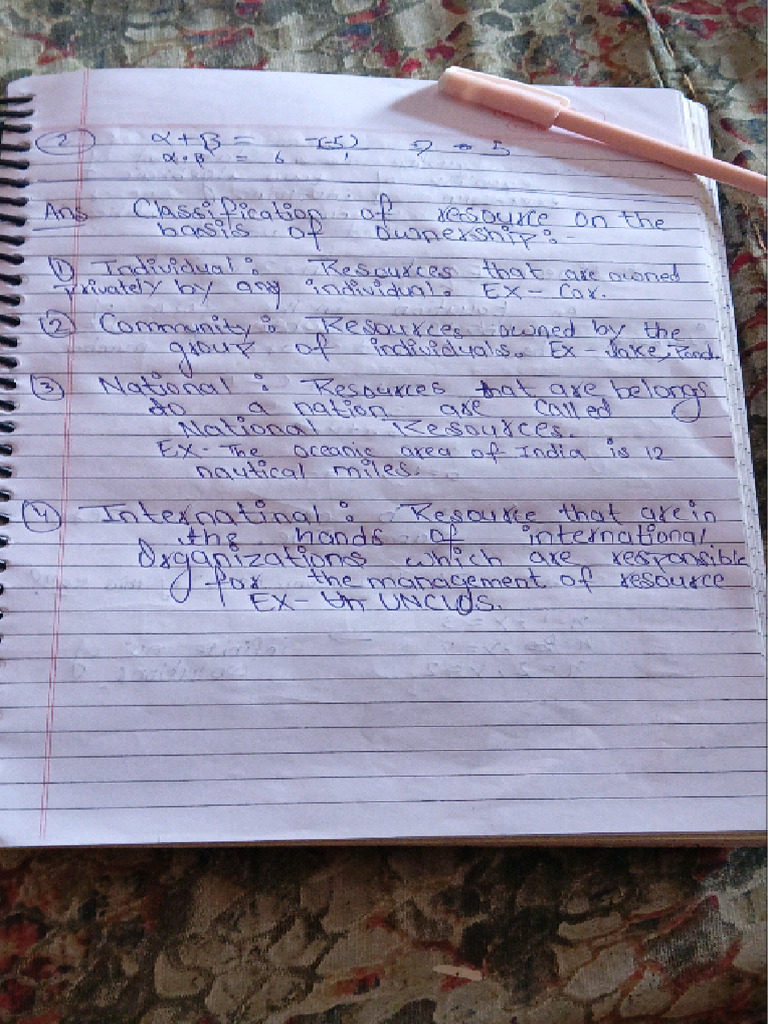 ② α+β = -(-5) => 5
α.β = 6 1
Ans Classification of resource on the
basis of ownership:-
① Individual: Resources that are owned
privately by any individual. EX- Car.
② Community: Resources owned by the
group of individuals. Ex - lake, Pond.
③ National: Resources that are belongs
to a nation are called
National Resources.
EX- The oceanic area of India is 12
nautical miles.
④ Internatinal: Resource that are in
the hands of international
Organizations which are responsible
for the management of resource
EX- UNCLOS.